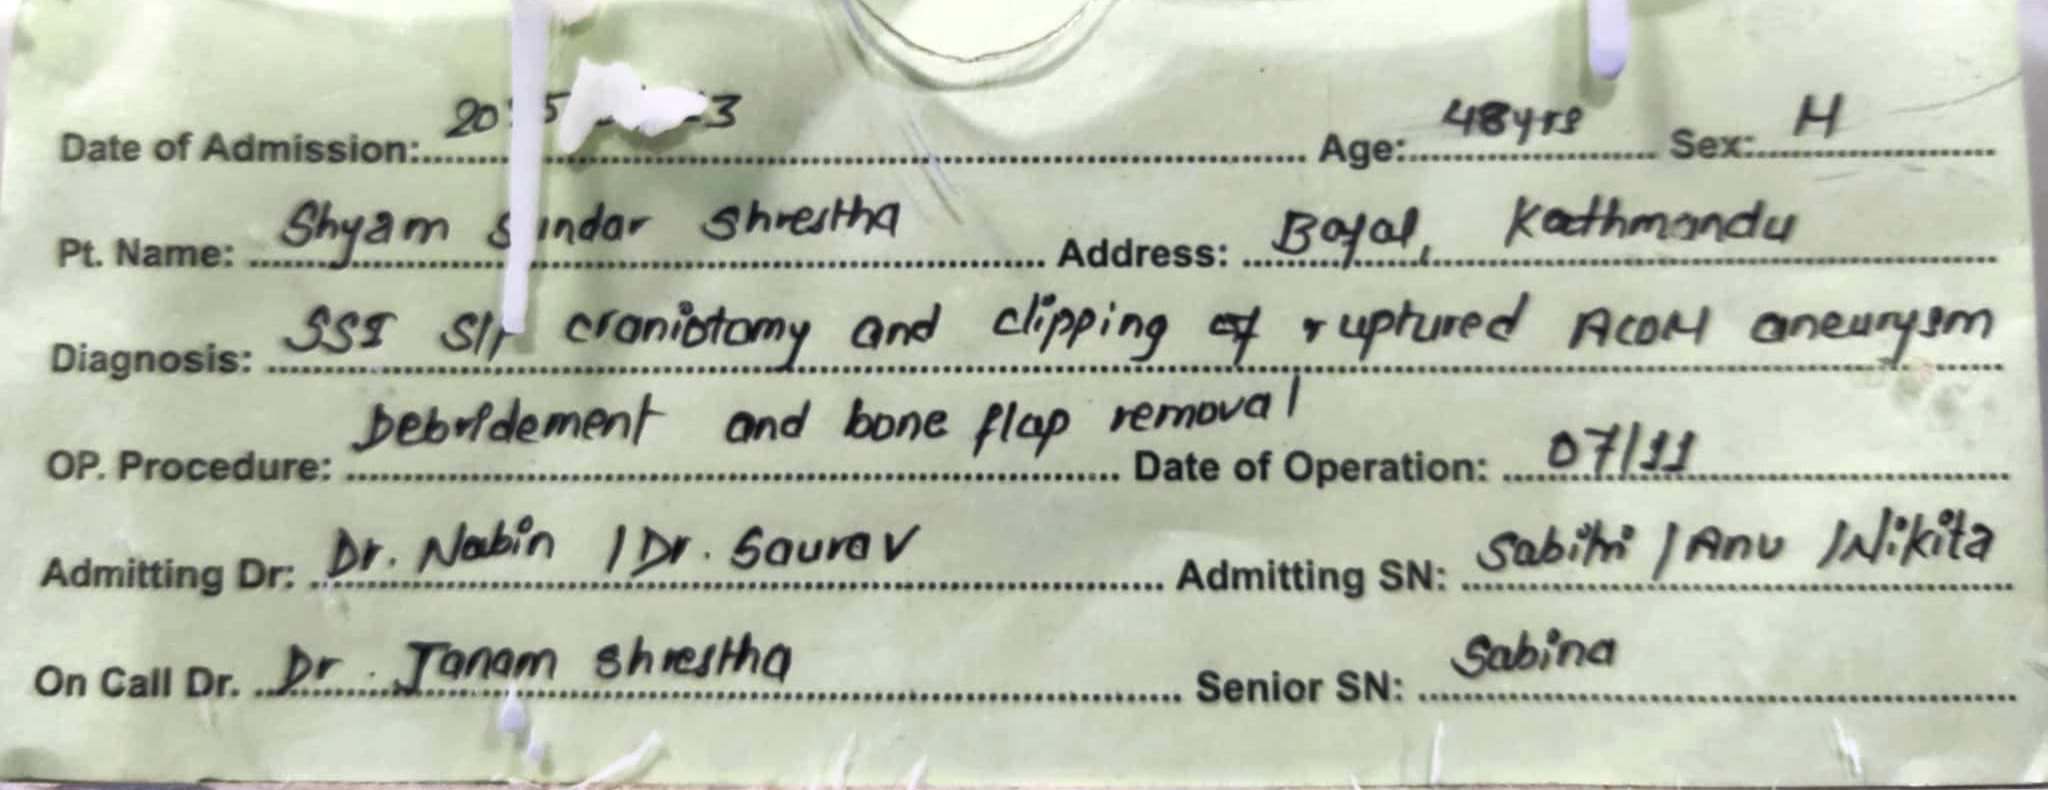 Date of Admission: Age: 48yrs Sex: M
Pt. Name: Shyam Sundar Shrestha Address: Kathmandu
Diagnosis: SSI S/P craniotomy and clipping of ruptured ACOM aneurysm
OP. Procedure: Debridement and bone flap removal Date of Operation: 07/11
Admitting Dr: Dr. Nabin / Dr. Saurav Admitting SN: Sabitri / Anu / Nikita
On Call Dr. Dr. Janam Shrestha Senior SN: Sabina